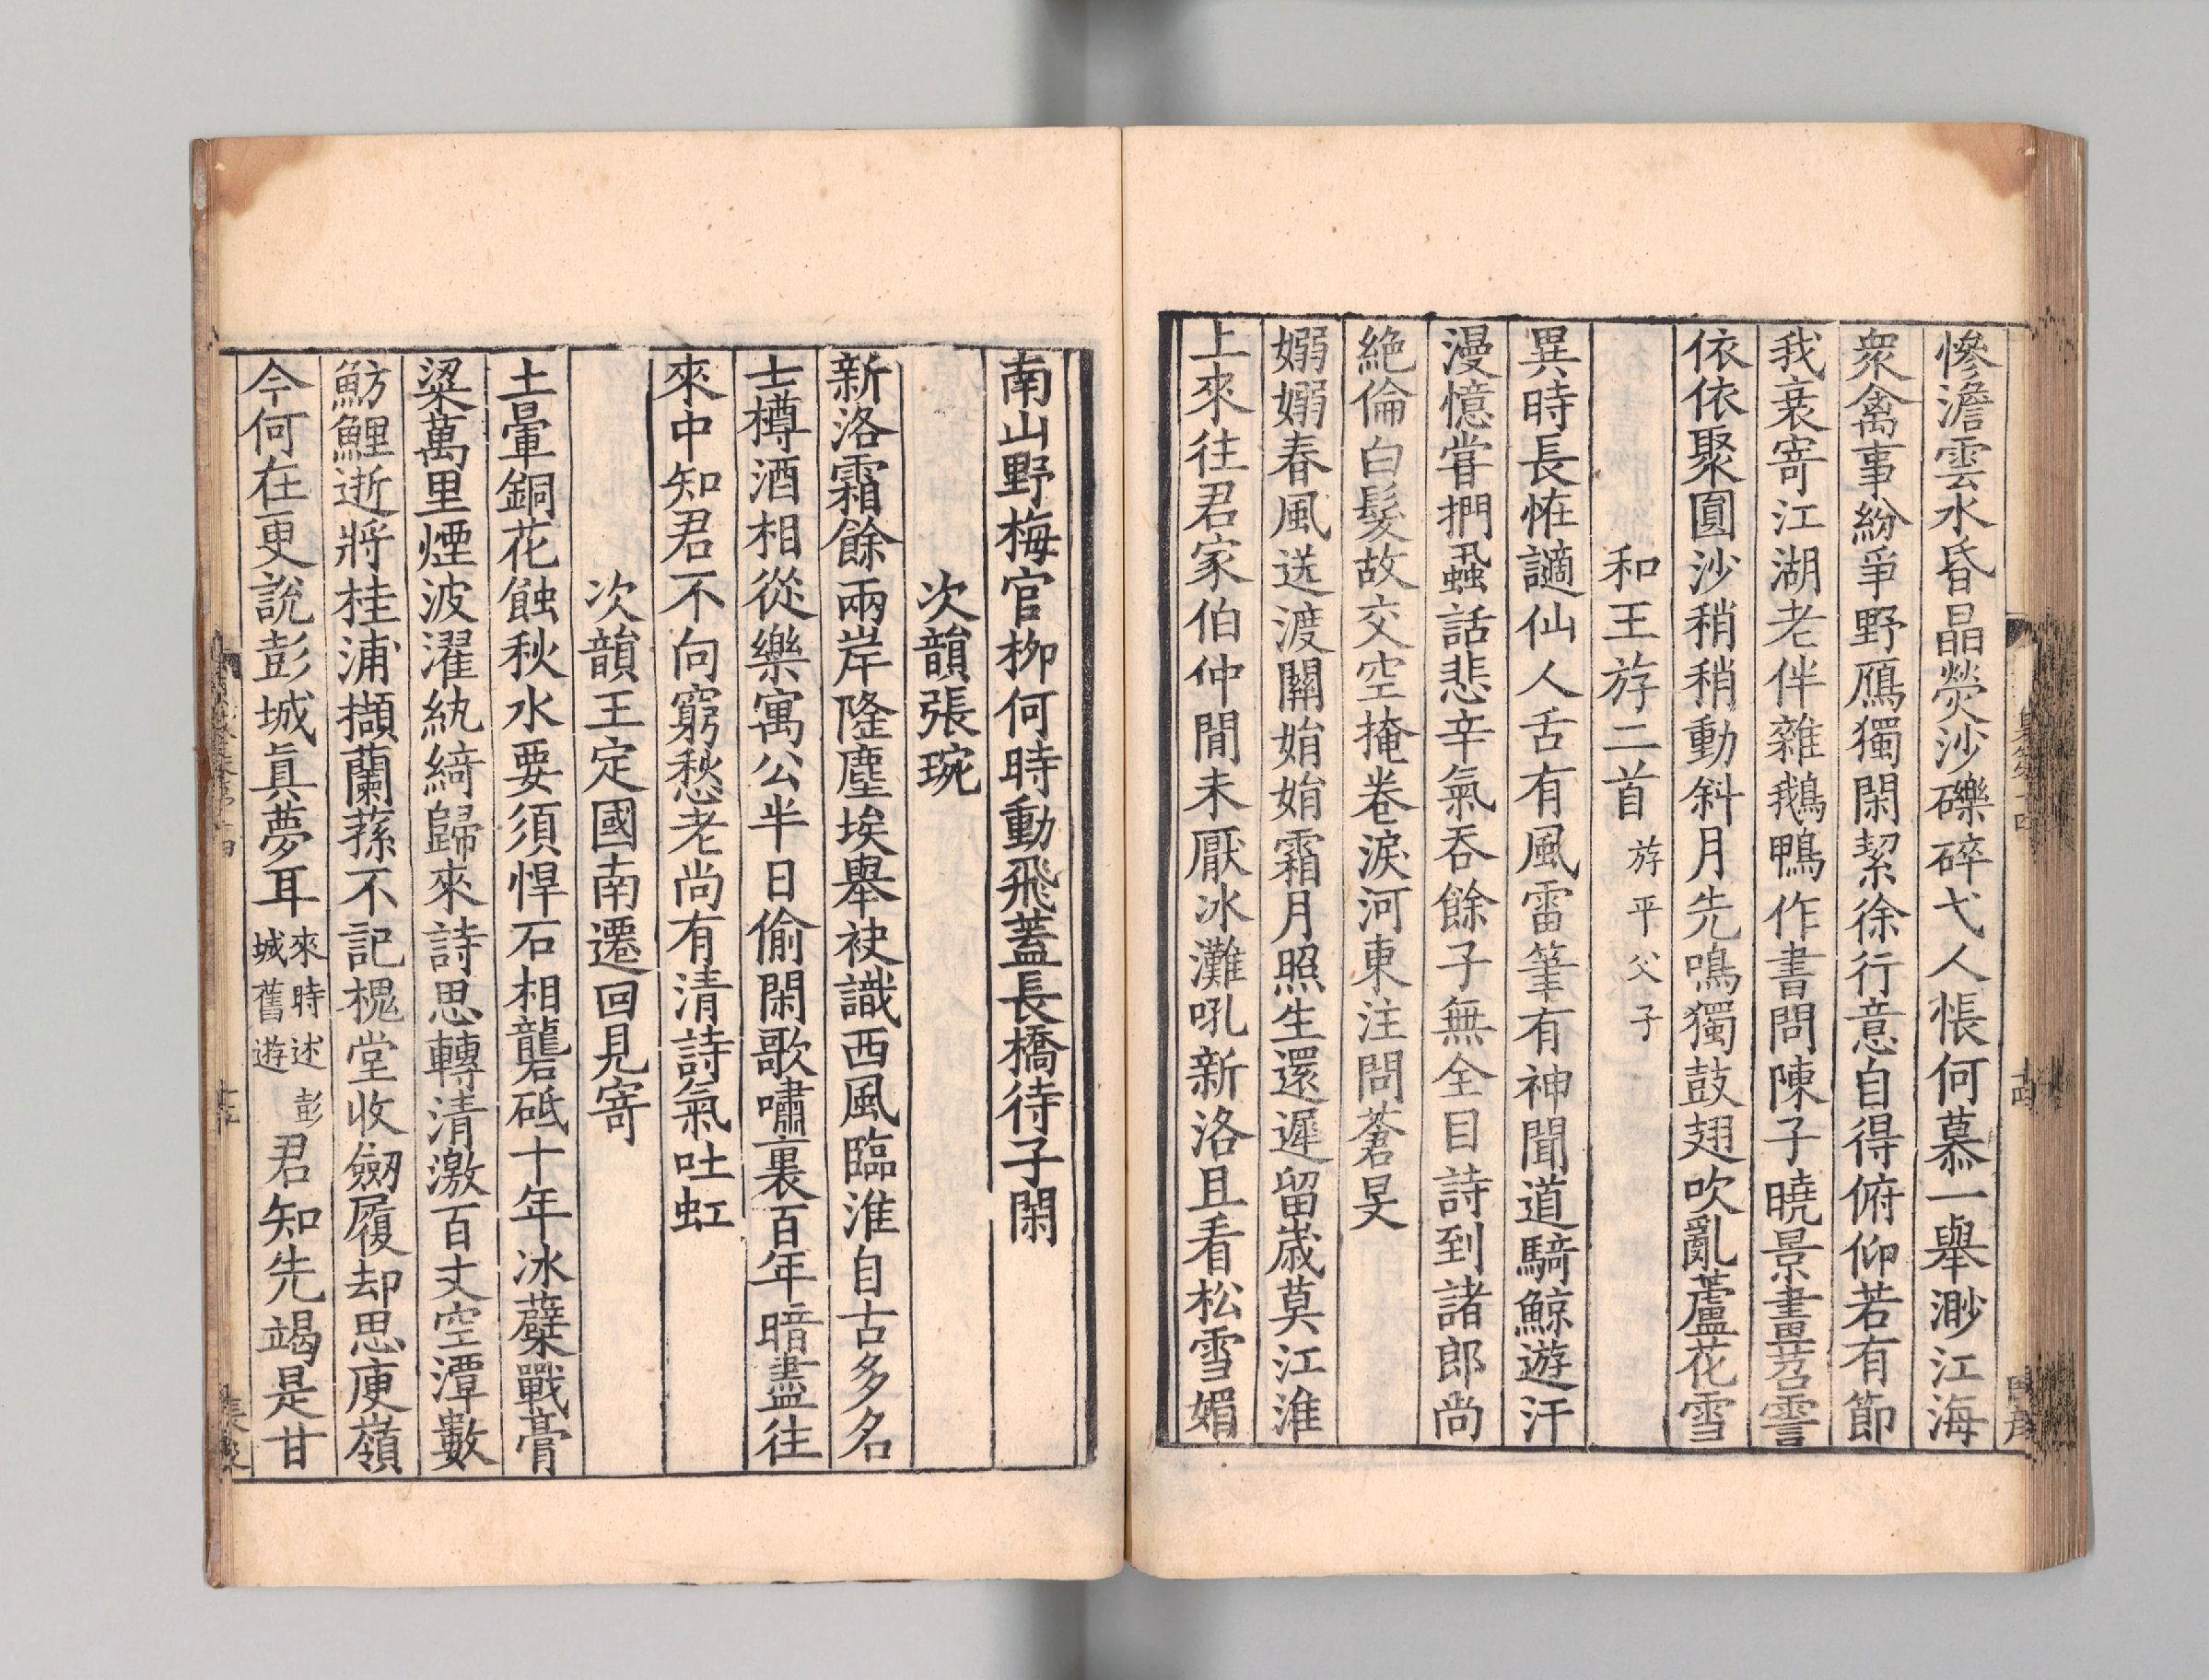 慘澹雲水昏晶熒沙礫碎弋人悵何慕一舉渺江海
衆禽事紛爭野鴈獨閑潔徐行意自得俯仰若有節
我衰寄江湖老伴雜鵝鴨作書問陳子曉景畫苕霅
依依聚圓沙稍稍動斜月先鳴獨鼓翅吹亂蘆花雪
和王斿二首 斿平父子
異時長恠謫仙人舌有風雷筆有神聞道騎鯨遊汗
漫憶甞捫蝨話悲辛氣吞餘子無全目詩到諸郎尚
絶倫白髮故交空掩卷淚河東注問蒼旻
嫋嫋春風送渡關娟娟霜月照生還遲留歲莫江淮
上來往君家伯仲間未厭冰灘吼新洛且看松雪媚
南山野梅官柳何時動飛蓋長橋待子閑
次韻張琬
新洛霜餘兩岸隆塵埃舉袂識西風臨淮自古多名
士樽酒相從樂寓公半日偷閑歌嘯裏百年暗盡往
來中知君不向窮愁老尚有清詩氣吐虹
次韻王定國南遷回見寄
土暈銅花蝕秋水要須悍石相礱砥十年冰蘗戰膏
粱萬里煙波濯紈綺歸來詩思轉清激百丈空潭數
魴鯉逝將桂浦擷蘭蓀不記槐堂收劒履却思庾嶺
今何在更說彭城真夢耳 來時述彭城舊遊 君知先竭是甘